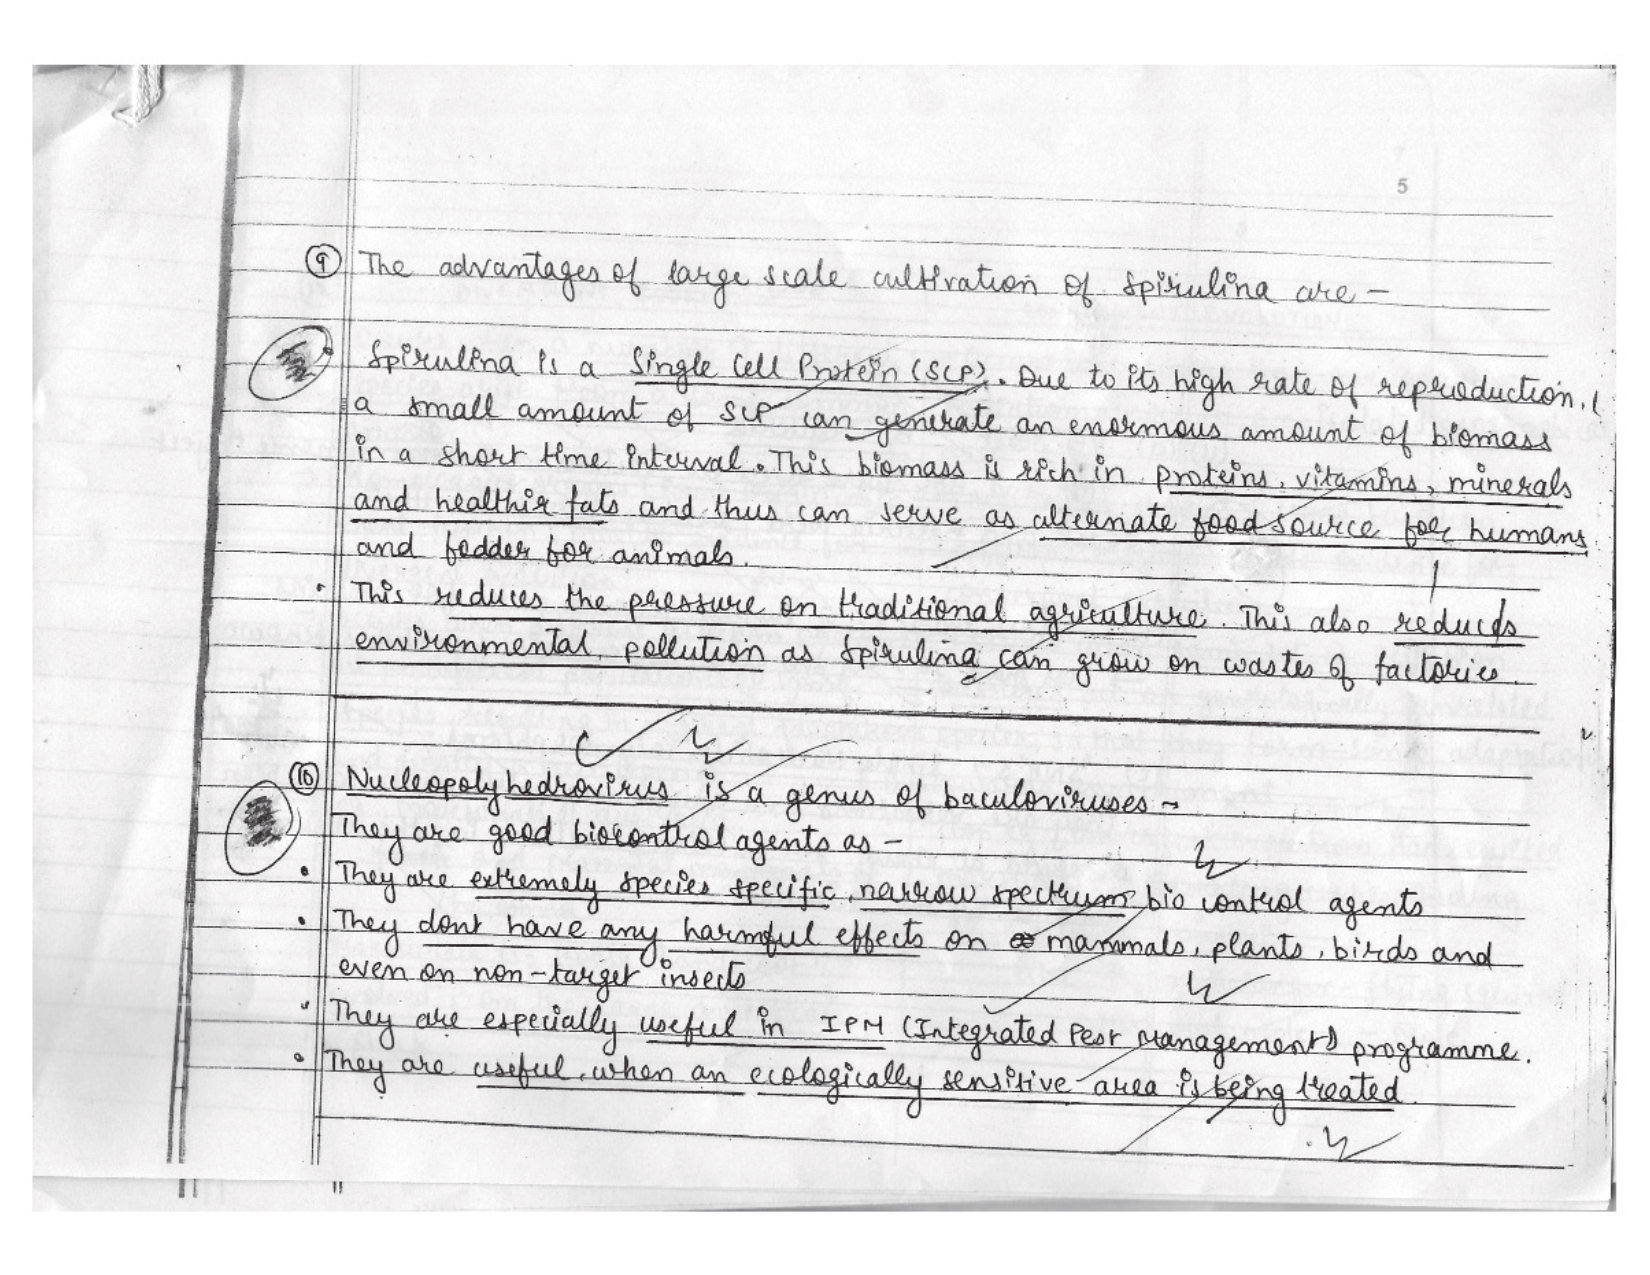 5
9 The advantages of large scale cultivation of Spirulina are -
Spirulina is a Single Cell Protein (SCP). Due to its high rate of reproduction,
a small amount of SCP can generate an enormous amount of biomass
in a short time interval. This biomass is rich in proteins, vitamins, minerals
and healthier fats and thus can serve as alternate food source for humans
and fodder for animals.
• This reduces the pressure on traditional agriculture. This also reduces
environmental pollution as Spirulina can grow on wastes of factories.
10 Nucleopolyhedrovirus is a genus of baculoviruses -
They are good biocontrol agents as -
• They are extremely species specific, narrow spectrum bio control agents
• They dont have any harmful effects on mammals, plants, birds and
even on non-target insects
• They are especially useful in IPM (Integrated Pest Management) programme.
• They are useful, when an ecologically sensitive area is being treated.